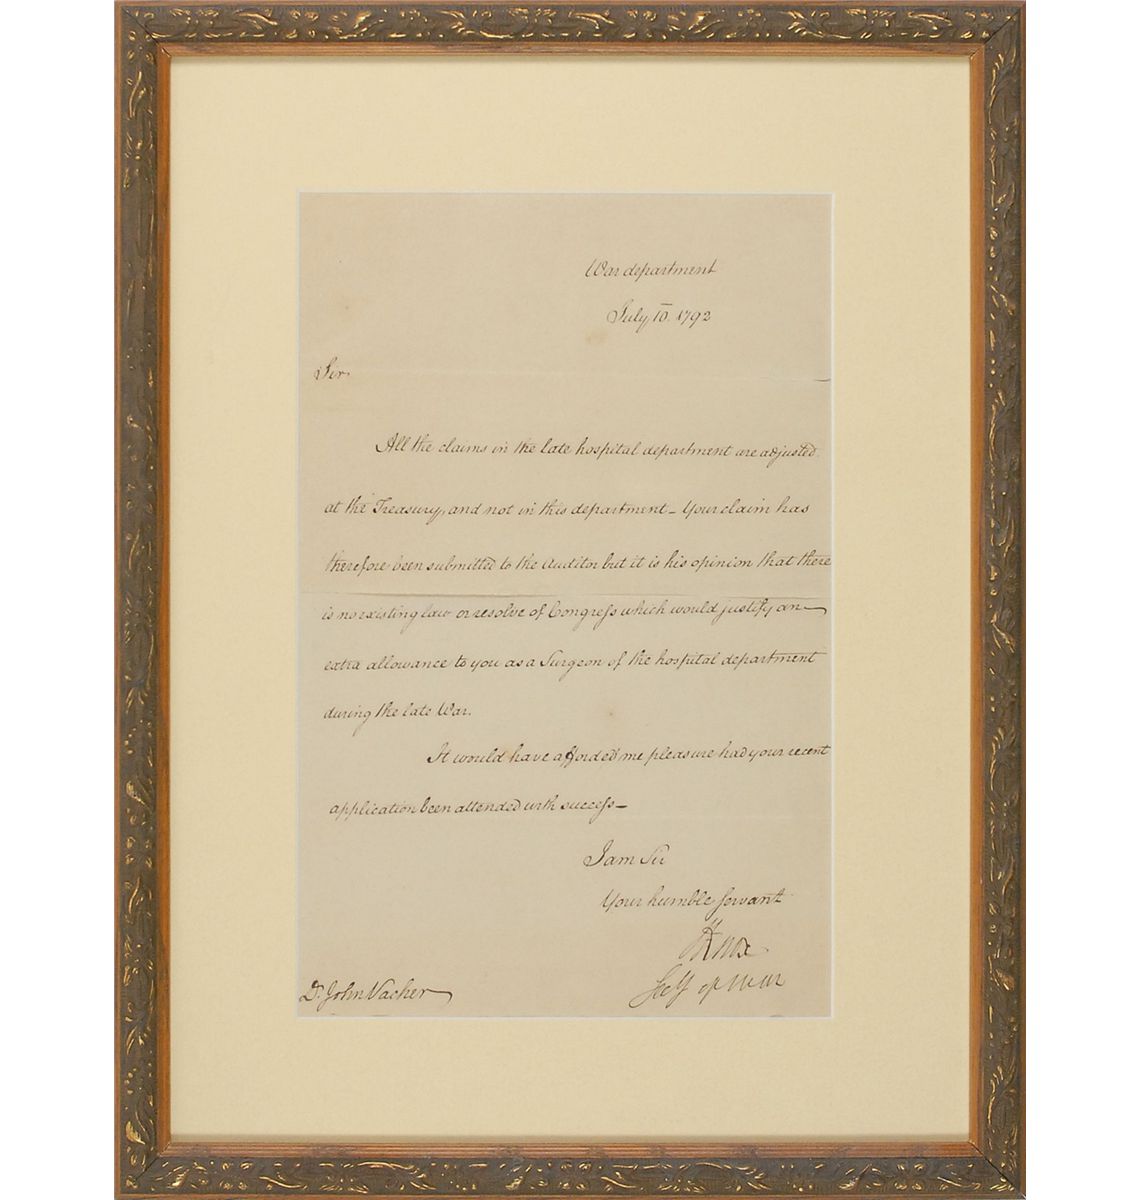 War department
July 10. 1792
Sir
All the claims in the late hospital department are adjusted
at the Treasury, and not in this department – Your claim has
therefore been submitted to the Auditor but it is his opinion that there
is no existing law or resolve of Congreſs which would justify an
extra allowance to you as a Surgeon of the hospital department
during the late War.
It would have afforded me pleasure had your recent
application been attended with succeſs –
I am Sir
Your humble servant
HKnox
Secy of War
Dr. John Vacher